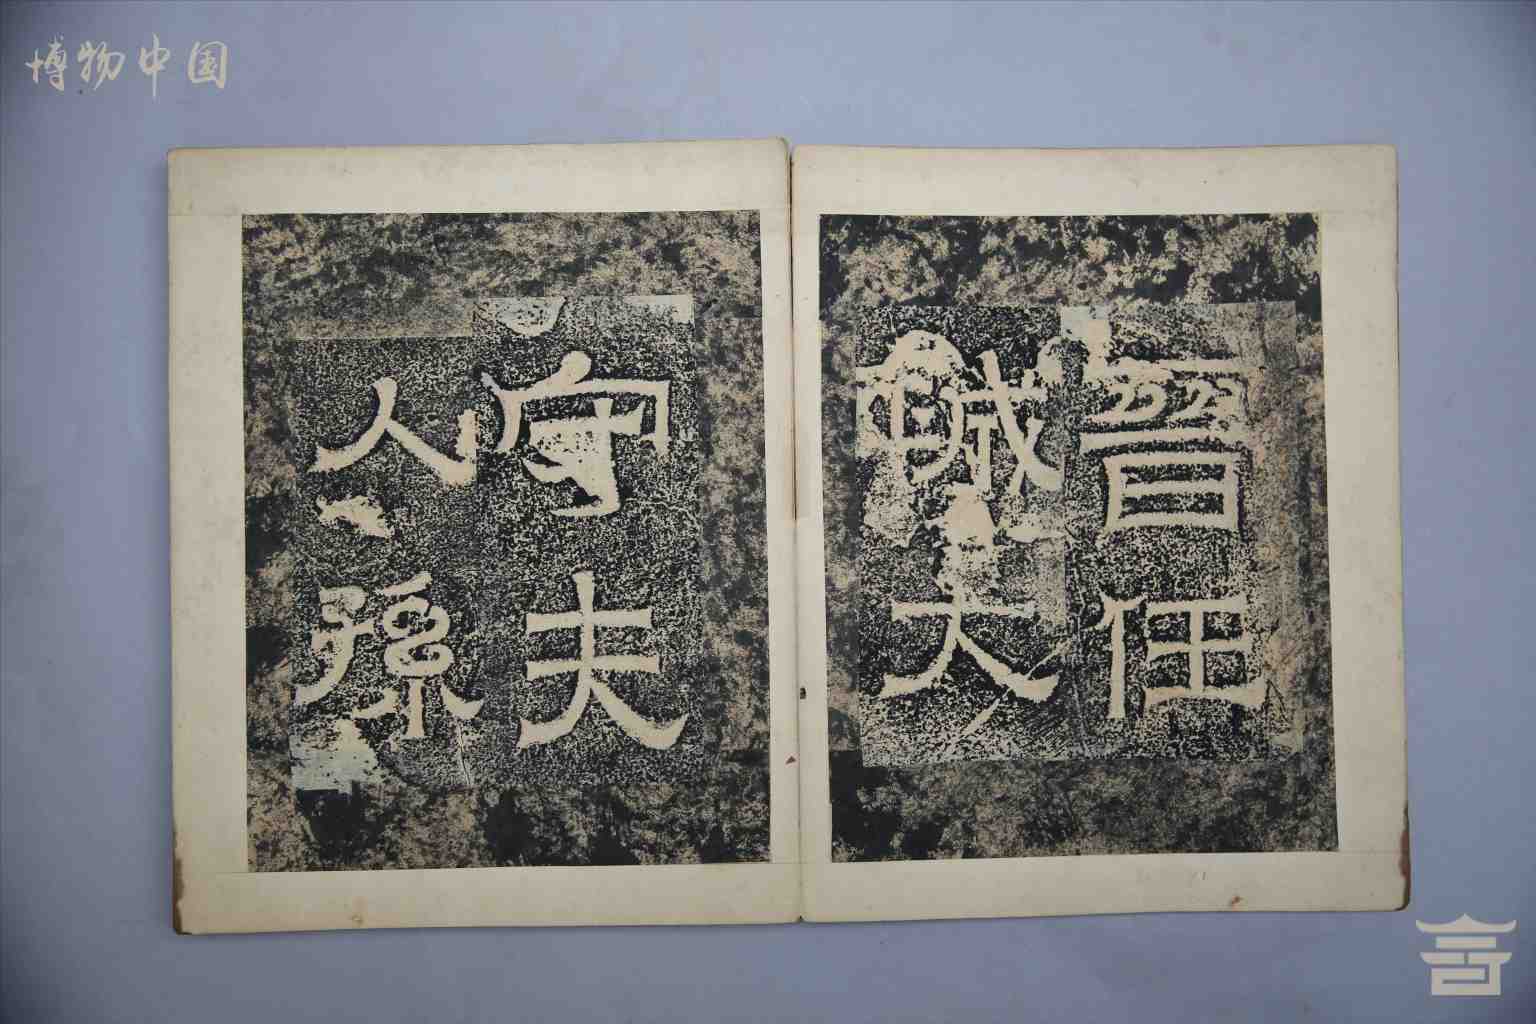 博物中国
晉任
城大
守夫
人孫